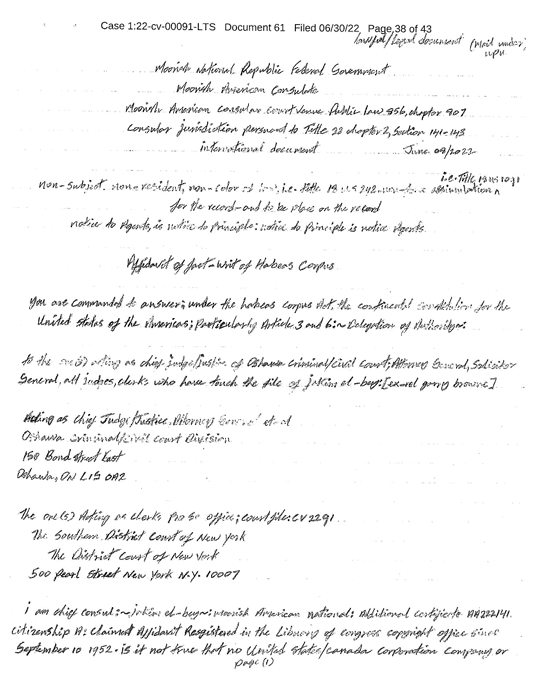 Case 1:22-cv-00091-LTS Document 61 Filed 06/30/22 Page 38 of 43
lawful/Legal document (mail under;
upu
Moorish National Republic Federal Government
Moorish American Consulate
Moorish American consular court venue Public Law 856, chapter 807
Consular jurisdiction persuant to Title 22 chapter 2, section 141-143
international document June 08/2022
i.e. Title 18 us 1091
non-subject, non-resident, non-color of law, i.e. title 18 us 242 assimulation ^
for the record and to be place on the record
notice to Agents, is notice to principle: notice to Principle is notice Agents
Affidavit of fact-writ of Habeas Corpus
you are commanded to answer; under the habeas corpus Act, the continental constitution for the
United States of the Americas; Particularly Article 3 and 6 in Delegation of Authority:
to the one(s) acting as chief judge/justice of Oshawa criminal/civil court; Attorney General, Solicitor
General, all judges, clerks who have touch the file of jakim el-bey: [ex-rel garry browne]
Acting as Chief Judge/Justice, Attorney General et al
Oshawa criminal/civil court Division
150 Bond Street East
Oshawa, ON L1G 0A2
The one(s) Acting as clerks Pro Se office; court file: CV 2291
The Southern District Court of New York
The District Court of New York
500 Pearl Street New York N.Y. 10007
i am chief consul: ~jakim el-bey~: moorish American national: Additional certificate AA222141.
citizenship A: Claimant Affidavit Resgistered in the Library of congress copyright office since
September 10 1952. is it not true that no United States/canada corporation company or
page (1)